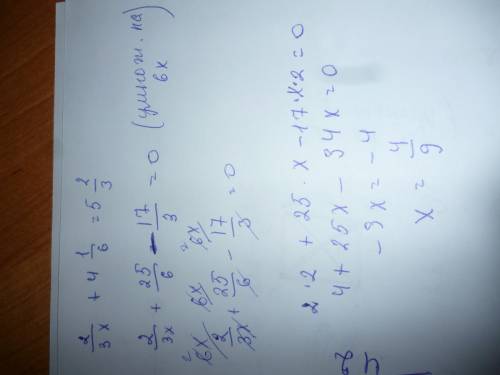 2/3x + 4 1/6 = 5 2/3
2/3x + 25/6 - 17/3 = 0 (умнож. на 6x)
6x 2/3x + 6x 25/6 - 6x 17/3 = 0
2·2 + 25·x - 17·x·2 = 0
4 + 25x - 34x = 0
-9x = -4
x = 4/9